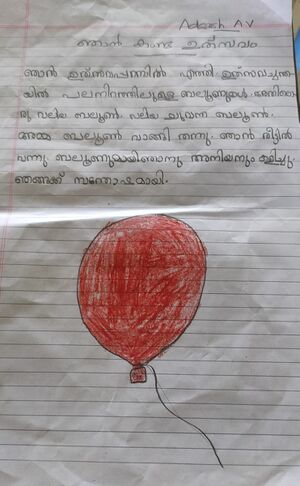 Adarsh A V
ഞാൻ കണ്ട ഉത്സവം
ഞാൻ ഉത്സവപ്പറമ്പിൽ എത്തി. ഉത്സവചന്ത
യിൽ പലനിറത്തിലുള്ള ബലൂണുകൾ.
രു വലിയ ബലൂൺ. വലിയ ചുവന്ന ബലൂൺ.
അമ്മ ബലൂൺ വാങ്ങി തന്നു. ഞാൻ വീട്ടിൽ
വന്നു. ബലൂണുമായിഞാനും അനിയനും കളിച്ചു.
ഞങ്ങൾക്ക് സന്തോഷമായി.